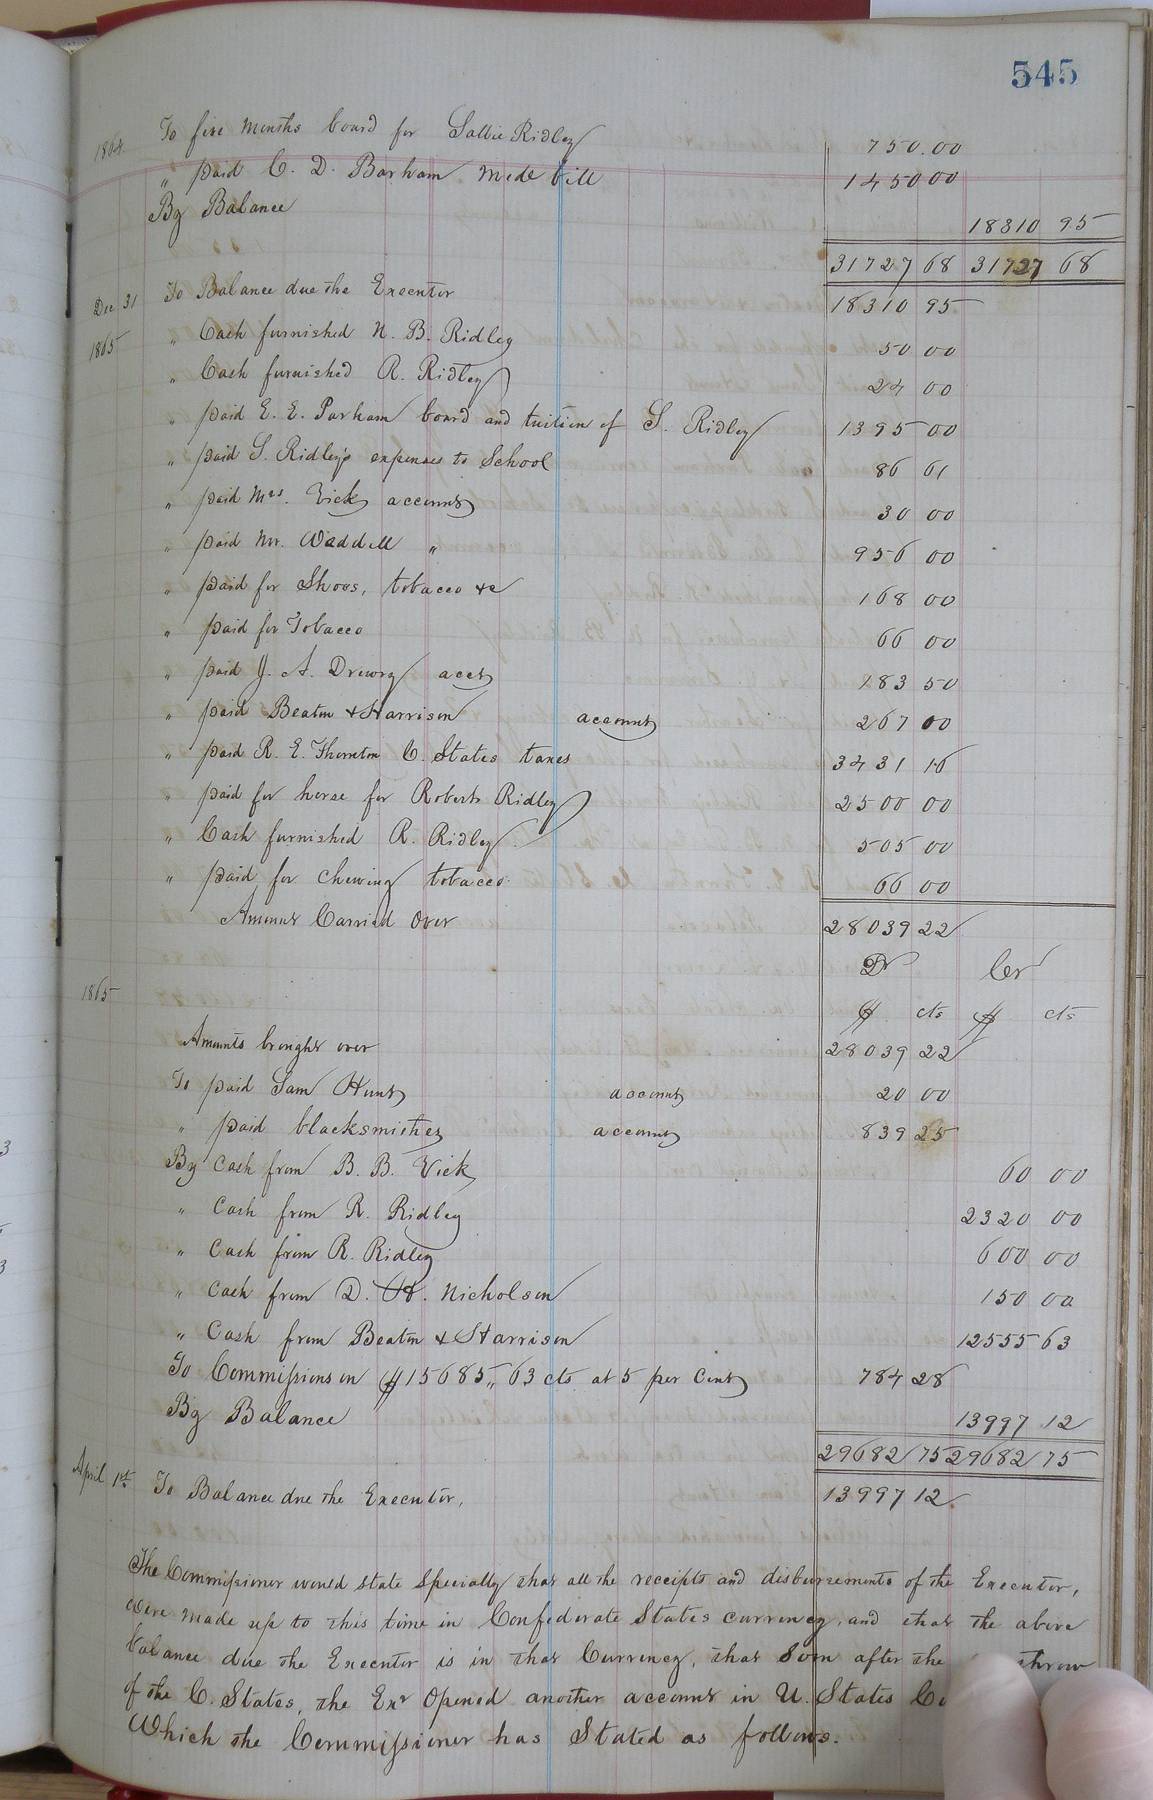 545
1864. To five Months board for Sallie Ridley 750.00
" paid C. D. Barham Mede bill 1450 00
By Balance 18310 95
31727 68 31727 68
Dec 31 To Balance due the Executor 18310 95
1865 " Cash furnished N. B. Ridley 50 00
" Cash furnished R. Ridley 24 00
" paid E. E. Parham board and tuition of S. Ridley 1395 00
" paid S. Ridley's expenses to School 86 61
" paid Mrs. Vick account 30 00
" paid Mr. Waddell " 956 00
" paid for Shoos, tobacco &c 168 00
" paid for Tobacco 66 00
" paid J. A. Drewry acct 183 50
" paid Beaton & Harrison account 267 00
" paid R. E. Thornton C. States taxes 3431 16
" paid for horse for Roberts Ridley 2500 00
" Cash furnished R. Ridley 505 00
" paid for chewing tobacco 66 00
Amount Carried Over 28039 22
Dr Cr
1865 $ cts $ cts
Amounts brought over 28039 22
To paid Sam Hunt account 20 00
" paid blacksmithes account 839 25
By Cash from B. B. Vick 60 00
" Cash from R. Ridley 2320 00
" Cash from R. Ridley 600 00
" Cash from D. H. Nicholson 150 00
" Cash from Beaton & Harrison 12555 63
To Commissions on $15685,, 63 cts at 5 per Cent 784 28
By Balance 13997 12
29682 75 29682 75
April 1st To Balance due the Executor, 13997 12
The Commissioner would state Specially that all the receipts and disbursements of the Executor,
were made up to this time in Confederate States currency, and that the above
balance due the Executor is in that Currency, that Soon after the throw
of the C. States, the Exr Opened another account in U. States
Which the Commissioner has Stated as follows.